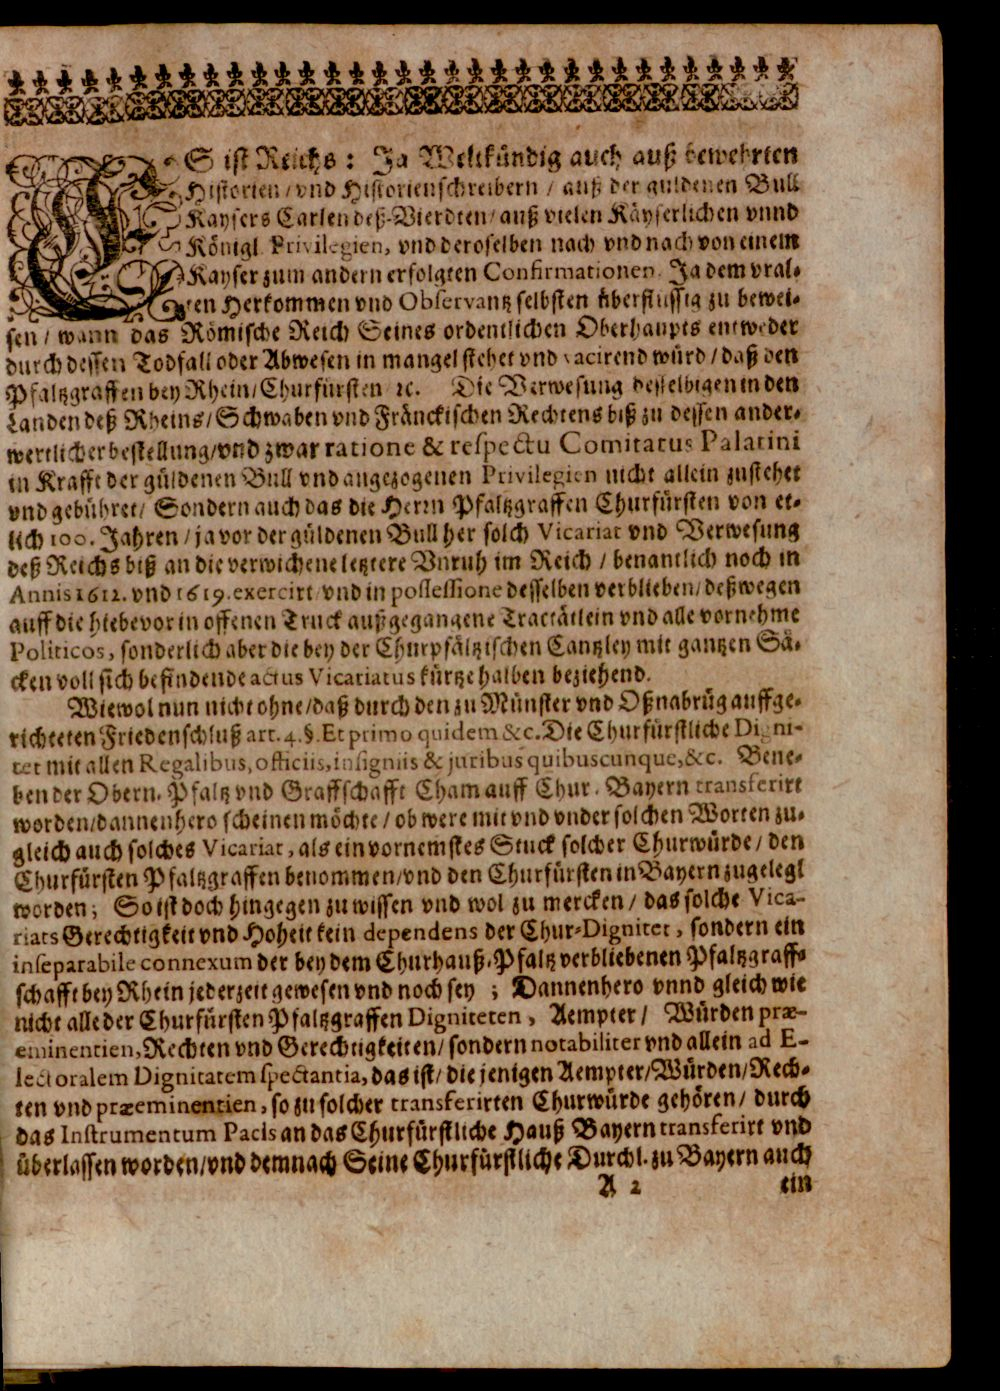 ES ist Reichs: Ja Weltkündig auch auß bewehrten
Historien/vnd Historienschreibern / auß der guldenen Bull
Kaysers Carlen deß-Vierdten/auß vielen Käyserlichen vnnd
Königl. Privilegien, vnd deroselben nach vnd nach von einem
Kayser zum andern erfolgten Confirmationen. Ja dem vral-
ten Herkommen vnd Observantz selbsten überflussig zu bewei-
sen / wann das Römische Reich Seines ordentlichen Oberhaupts entweder
durch dessen Todfall oder Abwesen in mangel stehet vnd vacirend würd / daß den
Pfaltzgraffen bey Rhein/Churfürsten ꝛc. Die Verwesung desselbigen in den
Landen deß Rheins/Schwaben vnd Fränckischen Rechtens biß zu dessen ander-
wertlicher bestellung/vnd zwar ratione & respectu Comitatus Palatini
in Krafft der güldenen Bull vnd angezogenen Privilegien nicht allein zustehet
vnd gebühret/ Sondern auch das die Herrn Pfaltzgraffen Churfürsten von et-
lich 100. Jahren / ja vor der güldenen Bull her solch Vicariat vnd Verwesung
deß Reichs biß an die verwichene letztere Vnruh im Reich / benantlich noch in
Annis 1612. vnd 1619. exercirt/vnd in possessione desselben verblieben/deßwegen
auff die hiebevor in offenen Truck außgegangene Tractätlein vnd alle vornehme
Politicos, sonderlich aber die bey der Churpfältzischen Cantzley mit gantzen Sä-
cken voll sich befindende actus Vicariatus kürtze halben beziehend.
Wiewol nun nicht ohne/daß durch den zu Münster vnd Oßnabrüg auffge-
richteten Friedenschluß art. 4. §. Et primo quidem &c. Die Churfürstliche Digni-
tet mit allen Regalibus, officiis, insigniis & juribus quibuscunque, &c. Bene-
ben der Obern-Pfaltz vnd Graffschafft Cham auff Chur-Bayern transferirt
worden/dannenhero scheinen möchte / ob were mit vnd vnder solchen Worten zu-
gleich auch solches Vicariat, als ein vornemstes Stuck solcher Churwürde / den
Churfürsten Pfaltzgraffen benommen/vnd den Churfürsten in Bayern zugelegt
worden; So ist doch hingegen zu wissen vnd wol zu mercken / das solche Vica-
riats Gerechtigkeit vnd Hoheit kein dependens der Chur-Dignitet, sondern ein
inseparabile connexum der bey dem Churhauß-Pfaltz verbliebenen Pfaltzgraff-
schafft bey Rhein jederzeit gewesen vnd noch sey ; Dannenhero vnnd gleich wie
nicht alle der Churfürsten Pfaltzgraffen Digniteten, Aempter / Würden præ-
eminentien, Rechten vnd Gerechtigkeiten/ sondern notabiliter vnd allein ad E-
lectoralem Dignitatem spectantia, das ist / die jenigen Aempter/Würden/Rech-
ten vnd præeminentien, so zu solcher transferirten Churwürde gehören / durch
das Instrumentum Pacis an das Churfürstliche Hauß Bayern transferirt vnd
überlassen worden/vnd demnach Seine Churfürstliche Durchl. zu Bayern auch
A 2 ein